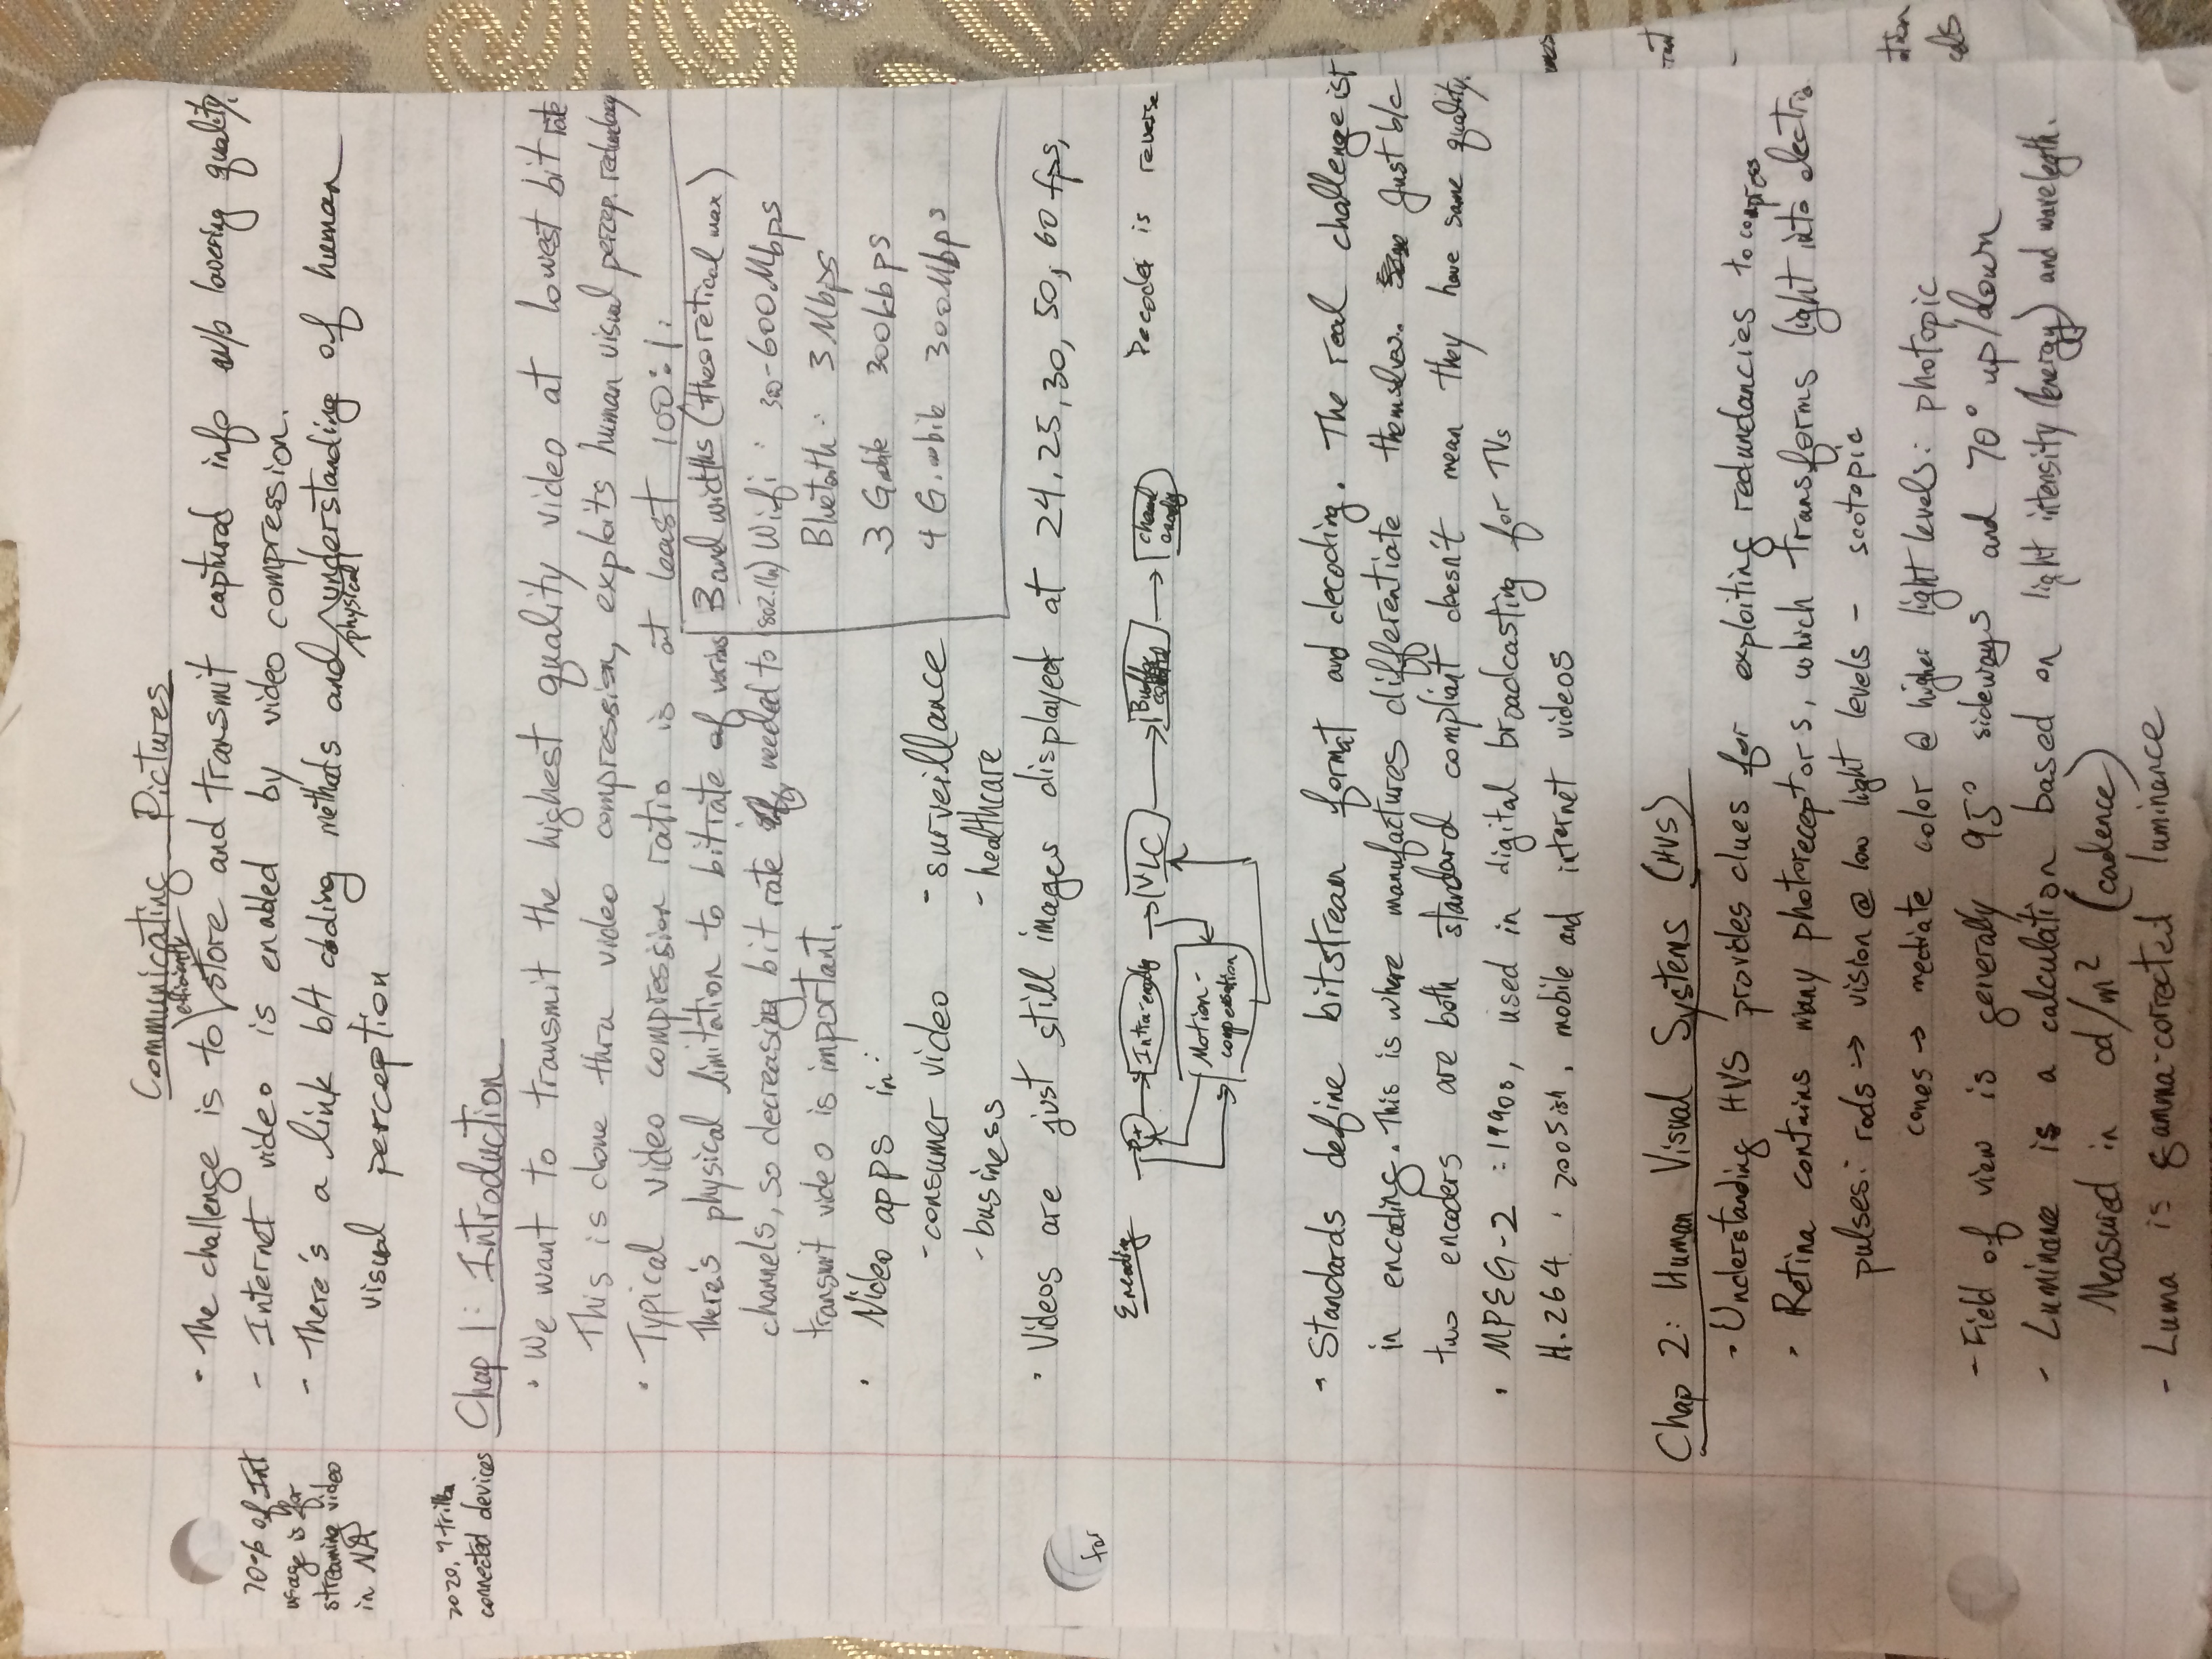 Communicating Pictures
- The challenge is to efficiently store and transmit captured info w/o lowering quality.
70% of Int
usage is for
streaming video
in NA
- Internet video is enabled by video compression.
- There's a link b/t coding methods and physical understanding of human
visual perception
2020, trillion
connected devices
Chap 1: Introduction
· We want to transmit the highest quality video at lowest bit rate
This is done thru video compression, exploits human visual percep. redundancy
· Typical video compression ratio is at least 100:1.
There's physical limitation to bitrate of various
channels, so decreasing bit rate needed to
transmit video is important.
Bandwidths (theoretical max)
(802.11n) Wifi : 30-600Mbps
Bluetooth : 3 Mbps
3 G mobile 300kbps
4 G. mobile 300Mbps
· Video apps in:
- consumer video - surveillance
- business - healthcare
· Videos are just still images displayed at 24, 25, 30, 50, 60 fps,
for
Encoding
+ Intra-encodg VLC Buffer control channel encodg
Decoder is reverse
Motion-
compensation
- Standards define bitstream format and decoding. The real challenge is
in encoding. This is where manufactures differentiate themselves. Just b/c
two encoders are both standard compliant doesn't mean they have same quality.
· MPEG-2 : 1990s, used in digital broadcasting for TVs
H.264 . 2005ish, mobile and internet videos
Chap 2: Human Visual Systems (HVS)
· Understanding HVS provides clues for exploiting redundancies to compress
· Retina contains many photoreceptors, which transforms light into electric
pulses: rods → vision @ low light levels - scotopic
cones → mediate color @ higher light levels: photopic
- Field of view is generally 95° sideways and 70° up/down
- Luminance is a calculation based on light intensity (energy) and wavelegth.
Measured in cd/m² (cadence)
- Luma is gamma-corrected luminance